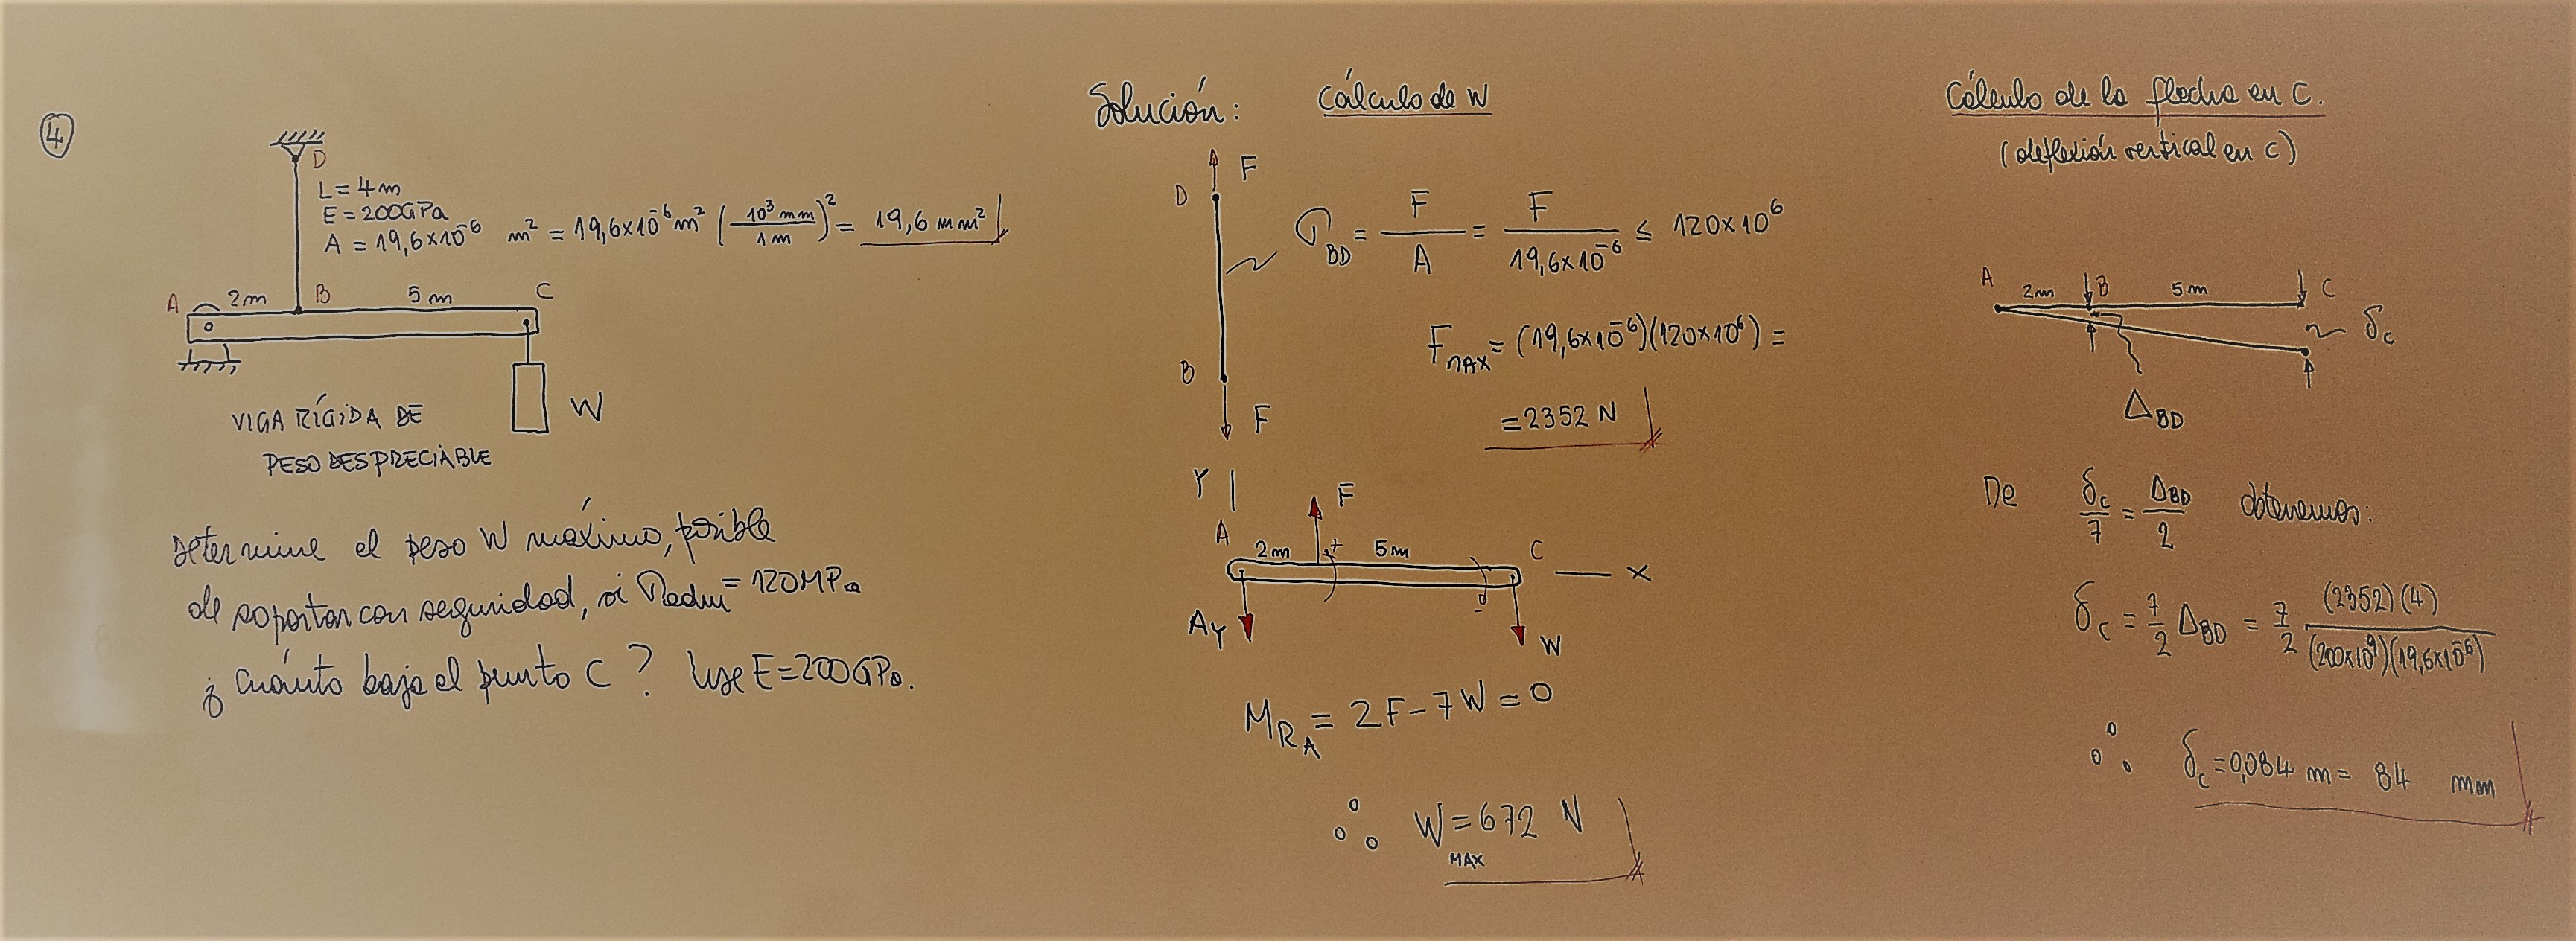 4
D
L = 4m
E = 200GPa
A = 19,6x10^-6 m² = 19,6x10^-6 m² (10³ mm / 1m)² = 19,6 mm²
A 2m B 5m C
W
VIGA RÍGIDA DE
PESO DESPRECIABLE
Determine el peso W máximo, posible
de soportar con seguridad, si σadm = 120MPa
¿ Cuánto baja el punto C ? Use E=200GPa.
Solución: Cálculo de W
F
D
σBD = F/A = F/19,6x10^-6 ≤ 120x10^6
FMAX = (19,6x10^-6)(120x10^6) =
= 2352 N
B
F
Y
F
A 2m + 5m C X
-
AY W
MRA = 2F - 7W = 0
∴ WMAX = 672 N
Cálculo de la flecha en C.
(deflexión vertical en C)
A 2m B 5m C
δc
ΔBD
De δc/7 = ΔBD/2 obtenemos:
δc = 7/2 ΔBD = 7/2 (2352)(4)/(200x10^9)(19,6x10^-6)
∴ δc = 0,084 m = 84 mm